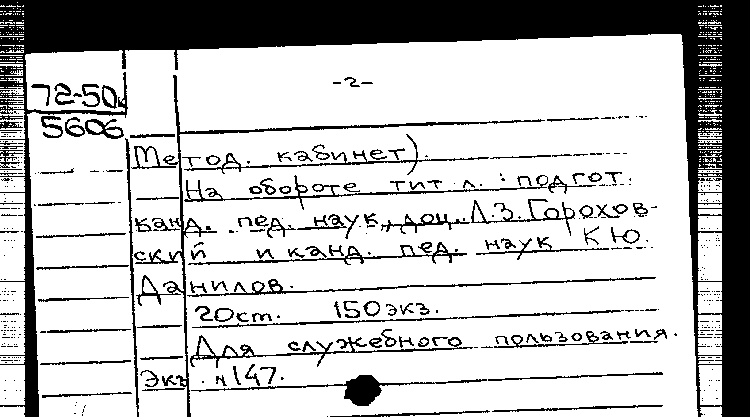 -2-
72-50к
5606
Метод. кабинет).
На обороте тит л. : подгот.
канд. пед. наук, доц. Л.З. Горохов-
ский и канд. пед. наук К.Ю.
Данилов.
20 ст. 150 экз.
Для служебного пользования.
Экз. №147.